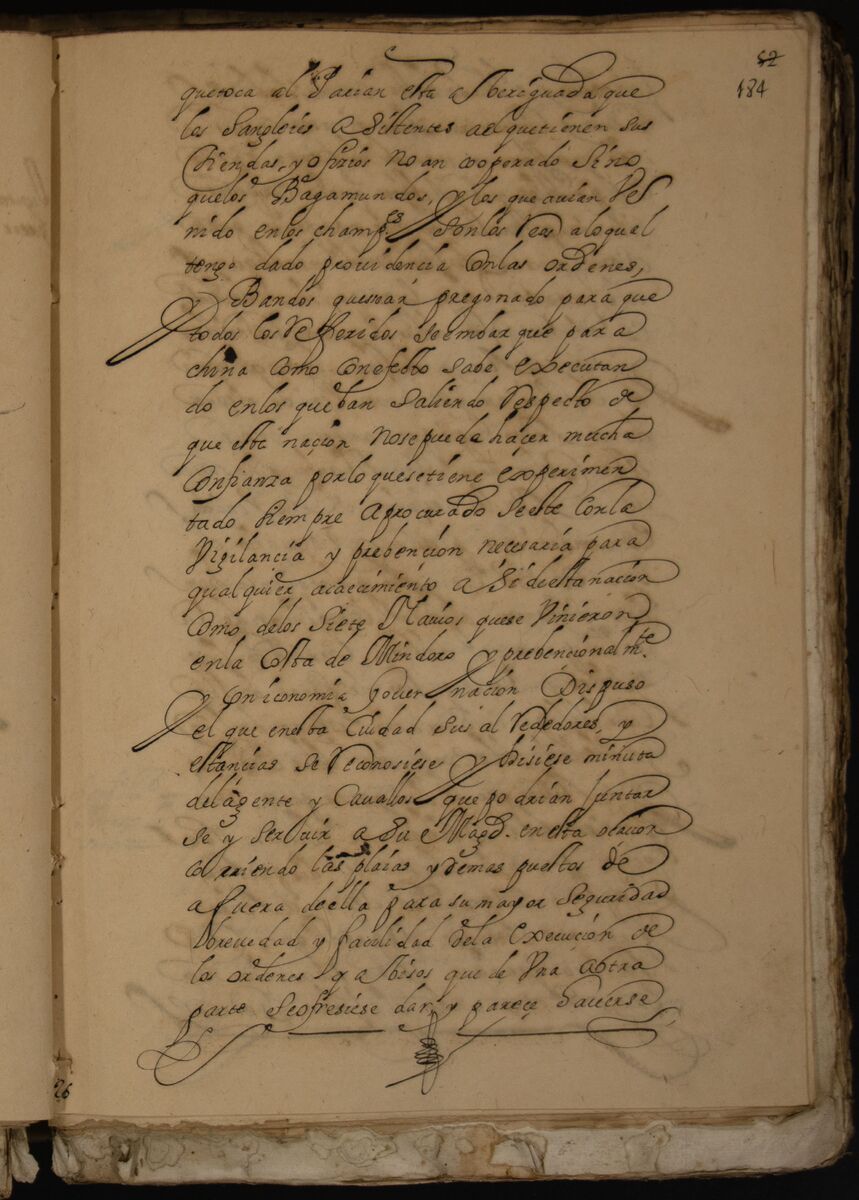 52
184
que toca al Parian esta aberiguada que
los Sangleies asistentes aelquetienen sus
tiendas, y ofizios no an cooperado sino
quelos Bagamundos, y los que avian Ve
nido enlos champes son los Reos aloqual
tengo dado providencia conlas ordenes,
y Bandos que se pregonado para que
todos los Referidos se embarquen para
china como conefecto sabe executan
do enlos queban saliendo Respecto de
que esta naçion nosepueda haçer mucha
Confianza porloquesetiene experimen
tado siempre aprocurado se este conla
Vigilancia y prebençion neçesaria para
qualquier acaeçimiento asi de esta naçion
Como delos siete Navios quese Vinieron
enla costa de Mindoro y prebencionalmte
y
el que enesta Ciudad sus al Rededores, y
estançias se Reconosiese y hisiese minuta
dela gente y Cavallos que podrian Juntar
se y serbuir a Su Magd. en esta ocaçion
corriendo las plaias y demas puestos de
afuera de ella para su mayor Seguridad
brevedad y facilidad dela execuçion de
los ordenes y abisos que de Vna aotra
parte se ofresiese dar y pareçe haverse
26